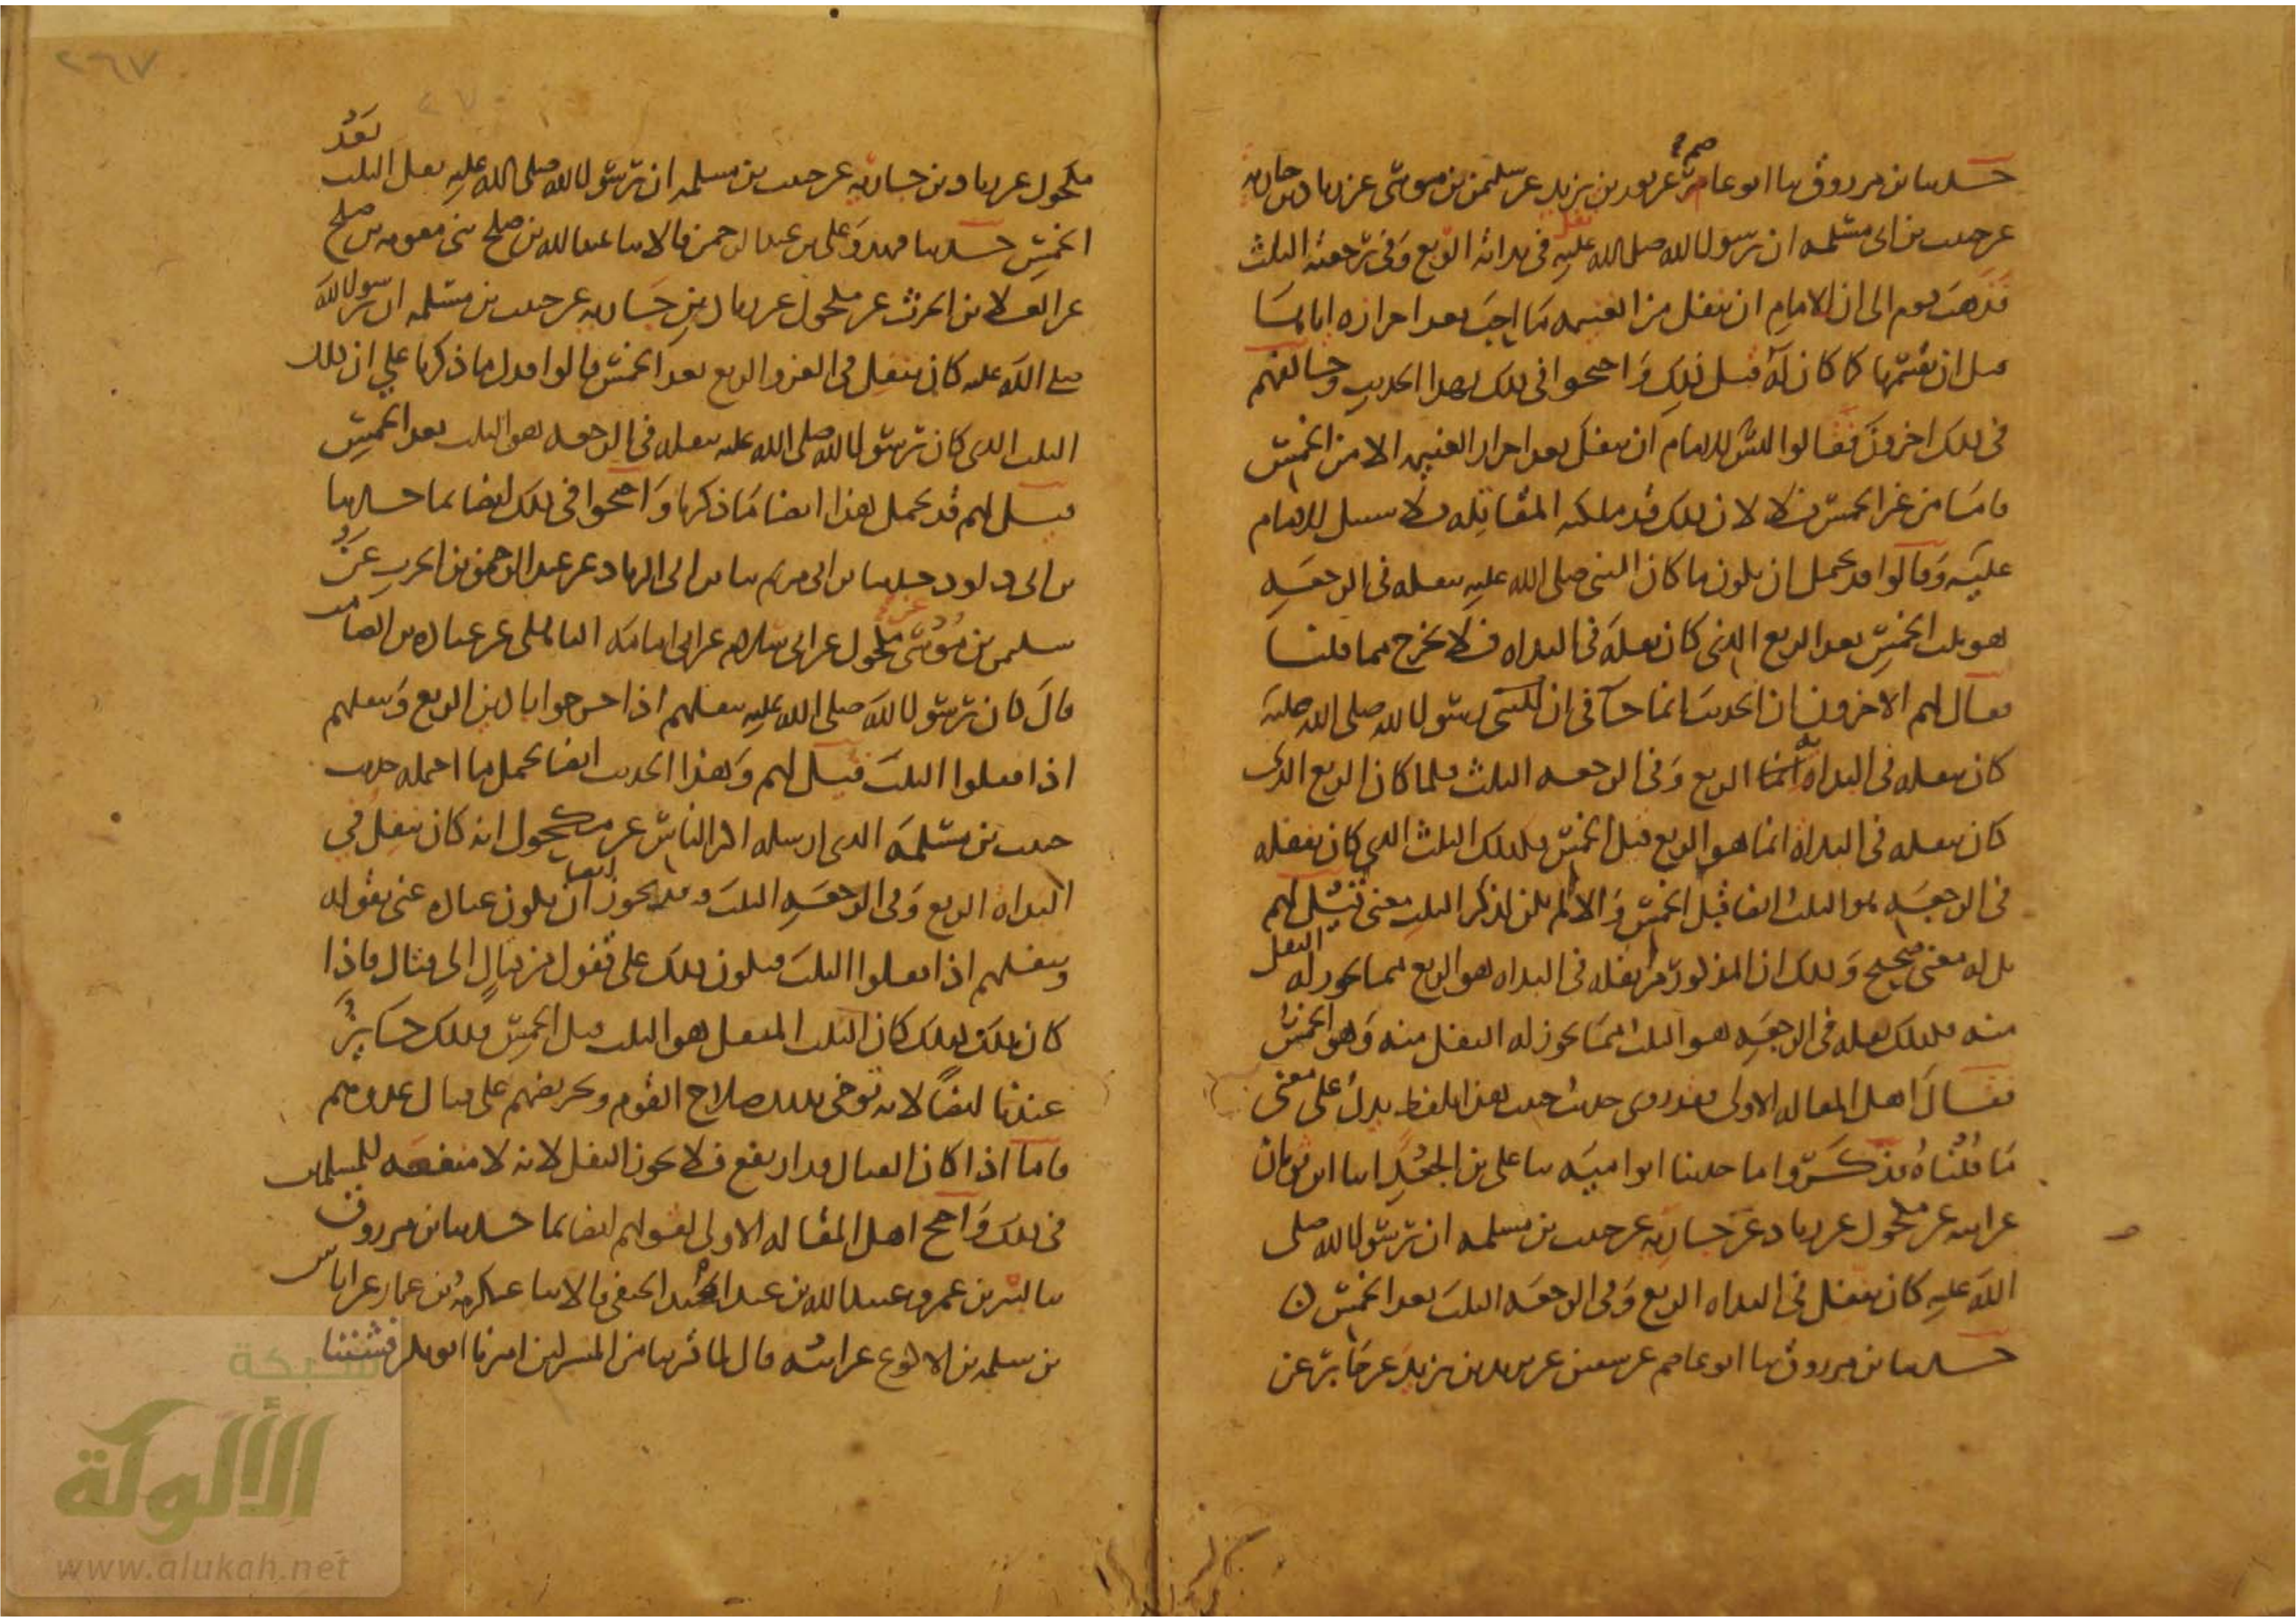 حدثنا ابن مرزوق ثنا ابو عاصم عن ثور بن يزيد عن سليمن بن موسى عن زياد بن جارية
عن حبيب بن ابى مسلمه ان رسول الله صلى الله عليه نفل فى بدأته الربع وفى رجعته الثلث
فذهب قوم الى ان الامام ان ينفل من الغنيمه ما احب بعد احرازه اياها
قبل ان يقسمها كما كان له قبل ذلك واحتجوا فى ذلك بهذا الحديث وخالفهم
فى ذلك اخرون فقالوا ليس للامام ان ينفل بعد احراز الغنيمه الا من الخمس
فاما من غير الخمس فلا لان ذلك قد ملكته المقاتله فلا سبيل للامام
عليه وقالوا قد يحتمل ان يكون ما كان النبى صلى الله عليه ينفله فى الرجعه
هو ثلث الخمس بعد الربع الذى كان نفله فى البداه فلا يخرج مما قلنا
فقال لهم الاخرون ان الحديث انما جآ فى ان رسول الله صلى الله عليه
كان ينفله فى البداه الربع وفى الرجعه الثلث فلما كان الربع الذى
كان ينفله فى البداة انما هو الربع قبل الخمس فكذلك الثلث الذى كان ينفله
فى الرجعه هو الثلث ايضا قبل الخمس والا لم يكن لذكر الثلث معنى قيل لهم
بل له معنى صحيح وذلك ان المذكور من نفله فى البداه هو الربع مما يجوز له النفل
منه فكذلك نفله فى الرجعه هو الثلث مما يجوز له النفل منه وهو الخمس
فقال اهل المقاله الاولى فقد روى حديث حبيب بهذا اللفظ يدل على معنى
ما قلناه فذكروا ما حدثنا ابو اميه ثنا على بن الجعد انا ابن ثوبان
عن ابيه عن مكحول عن زياد عن جاريه عن حبيب بن مسلمه ان رسول الله صلى
الله عليه كان ينفل فى البداه الربع وفى الرجعه الثلث بعد الخمس
حدثنا ابن مرزوق ثنا ابو عاصم عن سفين عن يزيد بن يزيد عن جابر عن
مكحول عن زياد بن جاريه عن حبيب بن مسلمه ان رسول الله صلى الله عليه نفل الثلث بعد
الخمس حدثنا فهد وعلى بن عبد الرحمن قالا ثنا عبد الله بن صلح ثنى معويه بن صلح
عن العلا بن الحرث عن مكحول عن زياد بن جاريه عن حبيب بن مسلمه ان رسول الله
صلى الله عليه كان ينفل فى الغزو الربع بعد الخمس قالوا فدل ما ذكرنا على ان ذلك
الثلث الذى كان رسول الله صلى الله عليه ينفله فى الرجعه هو الثلث بعد الخمس
قيل لهم قد يحتمل هذا ايضا ما ذكرنا واحتجوا فى ذلك ايضا بما حدثنا
بن ابى داود حدثنا بن ابى مريم ثنا بن ابى الزناد عن عبد الرحمن بن الحرث عن
سليمن بن موسى عن مكحول عن ابى سلام عن ابى امامه الباهلى عن عباده بن الصامت
قال كان رسول الله صلى الله عليه ينفلهم اذا خرجوا بادين الربع وينفلهم
اذا قفلوا الثلث قيل لهم وهذا الحديث ايضا يحتمل ما احتمله حديث
حبيب بن مسلمه الذى ارسله اكثر الناس عن مكحول انه كان ينفل فى
البداه الربع وفى الرجعه الثلث وقد يجوز ايضا ان يكون عباده عنى بقوله
وينفلهم اذا قفلوا الثلث فيكون ذلك على قفول من قتال الى قتال فاذا
كان ذلك كذلك كان الثلث المنفل هو الثلث قبل الخمس فذلك جايز
عندنا ايضا لانه توخى بذلك صلاح القوم وتحريضهم على قتال عدوهم
فاما اذا كان القتال قد ارتفع فلا يجوز النفل لانه لا منفعه للمسلمين
فى ذلك واحتج اهل المقاله الاولى لقولهم ايضا بما حدثنا ابن مرزوق
ثنا بشر بن عمر وعبيد الله بن عبد المجيد الحنفى قالا ثنا عكرمه بن عمار عن اياس
بن سلمه بن الاكوع عن ابيه قال لما قربنا من المشركين امرنا ابو بكر فشننا
٢٦٧
شبكة
الألوكة
www.alukah.net